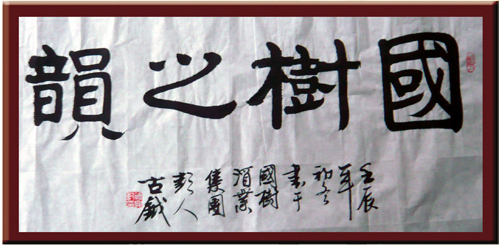 國樹之韻
壬辰
年
初
書于
國樹
酒業
集團
彭人
古鉞